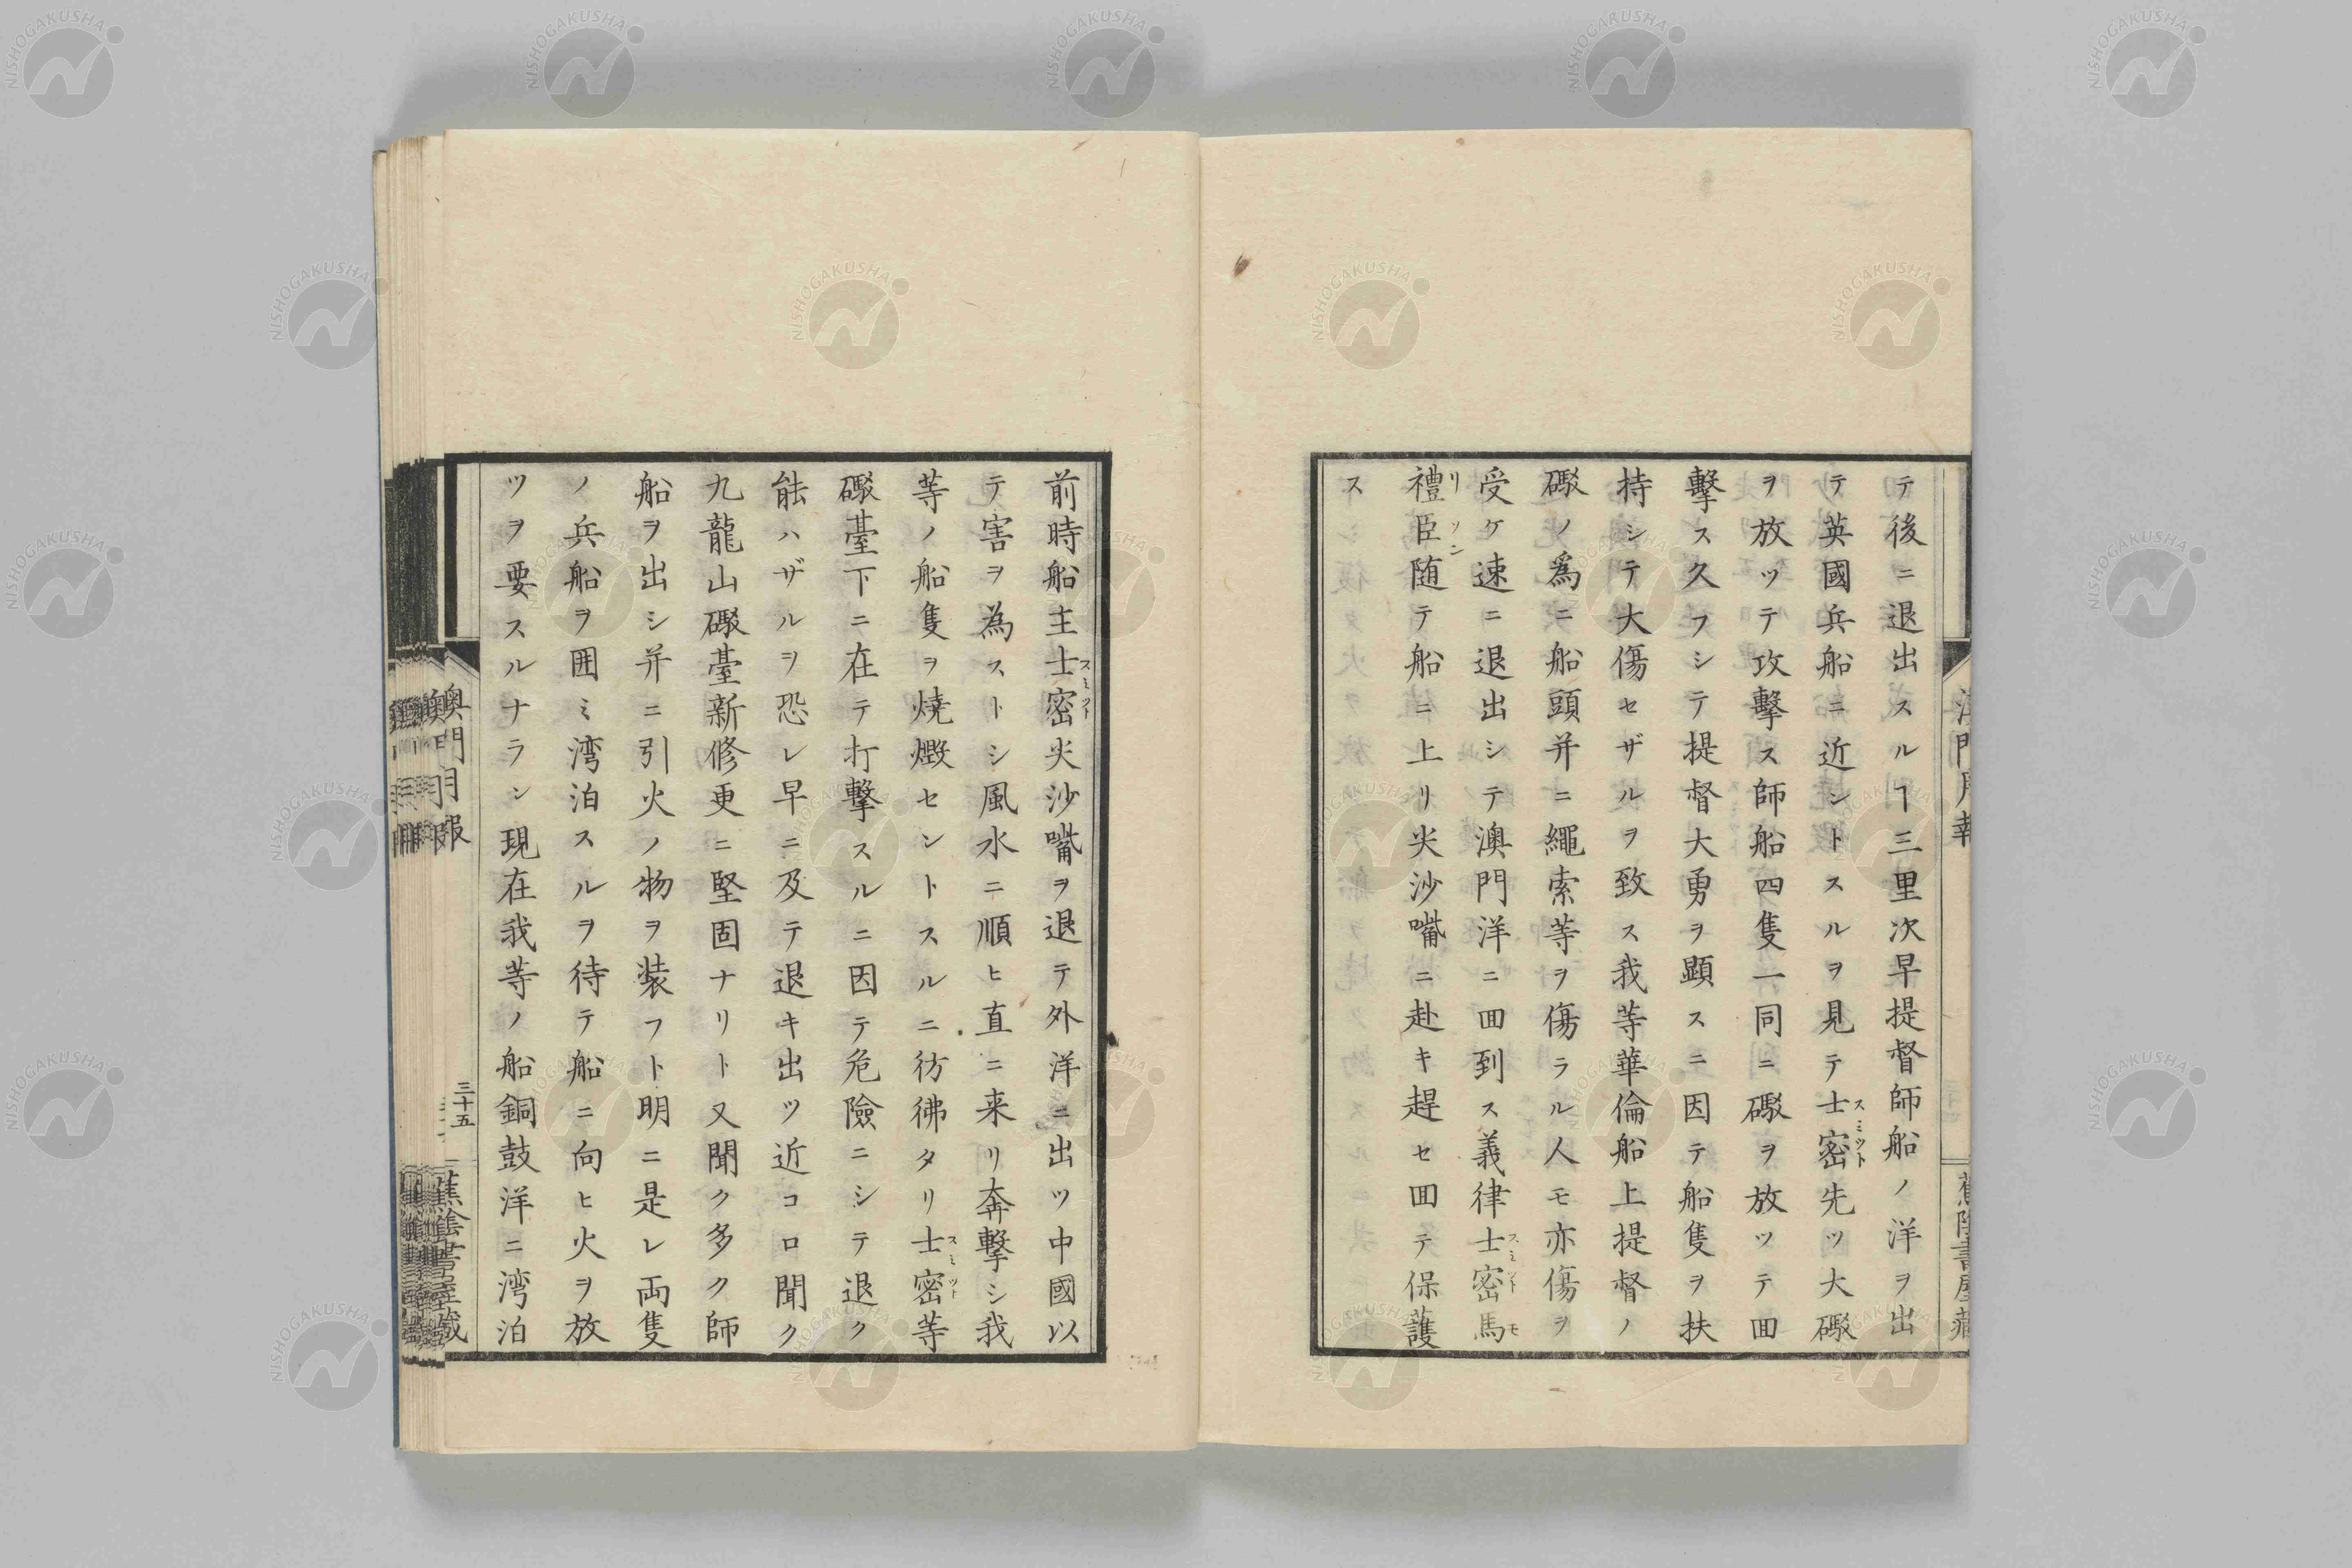 テ後ニ退出スルヿ三里次早提督師船ノ洋ヲ出
テ英國兵船ニ近ントスルヲ見テ士密先ッ大礮
スミツト
ヲ放ッテ攻擊ス師船四隻一同ニ礮ヲ放ッテ回
擊ス久フシテ提督大勇ヲ顕スニ因テ船隻ヲ扶
持シテ大傷セザルヲ致ス我等華倫船上提督ノ
礮ノ爲ニ船頭并ニ繩索等ヲ傷ラル人モ亦傷ヲ
受ケ速ニ退出シテ澳門洋ニ回到ス義律士密馬
スミツト モ
禮臣随テ船ニ上リ尖沙嘴ニ赴キ趕セ回テ保護
リ ソン
ス
澳門月報
蕉陰書屋藏
前時船主士密尖沙嘴ヲ退テ外洋ニ出ツ中國以
スミツト
テ害ヲ為ストシ風水ニ順ヒ直ニ来リ奔擊シ我
等ノ船隻ヲ燒燬セントスルニ彷彿タリ士密等
スミツト
礮臺下ニ在テ打擊スルニ因テ危險ニシテ退ク
能ハザルヲ恐レ早ニ及テ退キ出ツ近コロ聞ク
九龍山礮臺新修更ニ堅固ナリト又聞ク多ク師
船ヲ出シ并ニ引火ノ物ヲ装フト明ニ是レ両隻
ノ兵船ヲ囲ミ湾泊スルヲ待テ船ニ向ヒ火ヲ放
ツヲ要スルナラン現在我等ノ船銅鼓洋ニ湾泊
澳門月報
三十五
蕉陰書屋藏
NISHOGAKUSHA